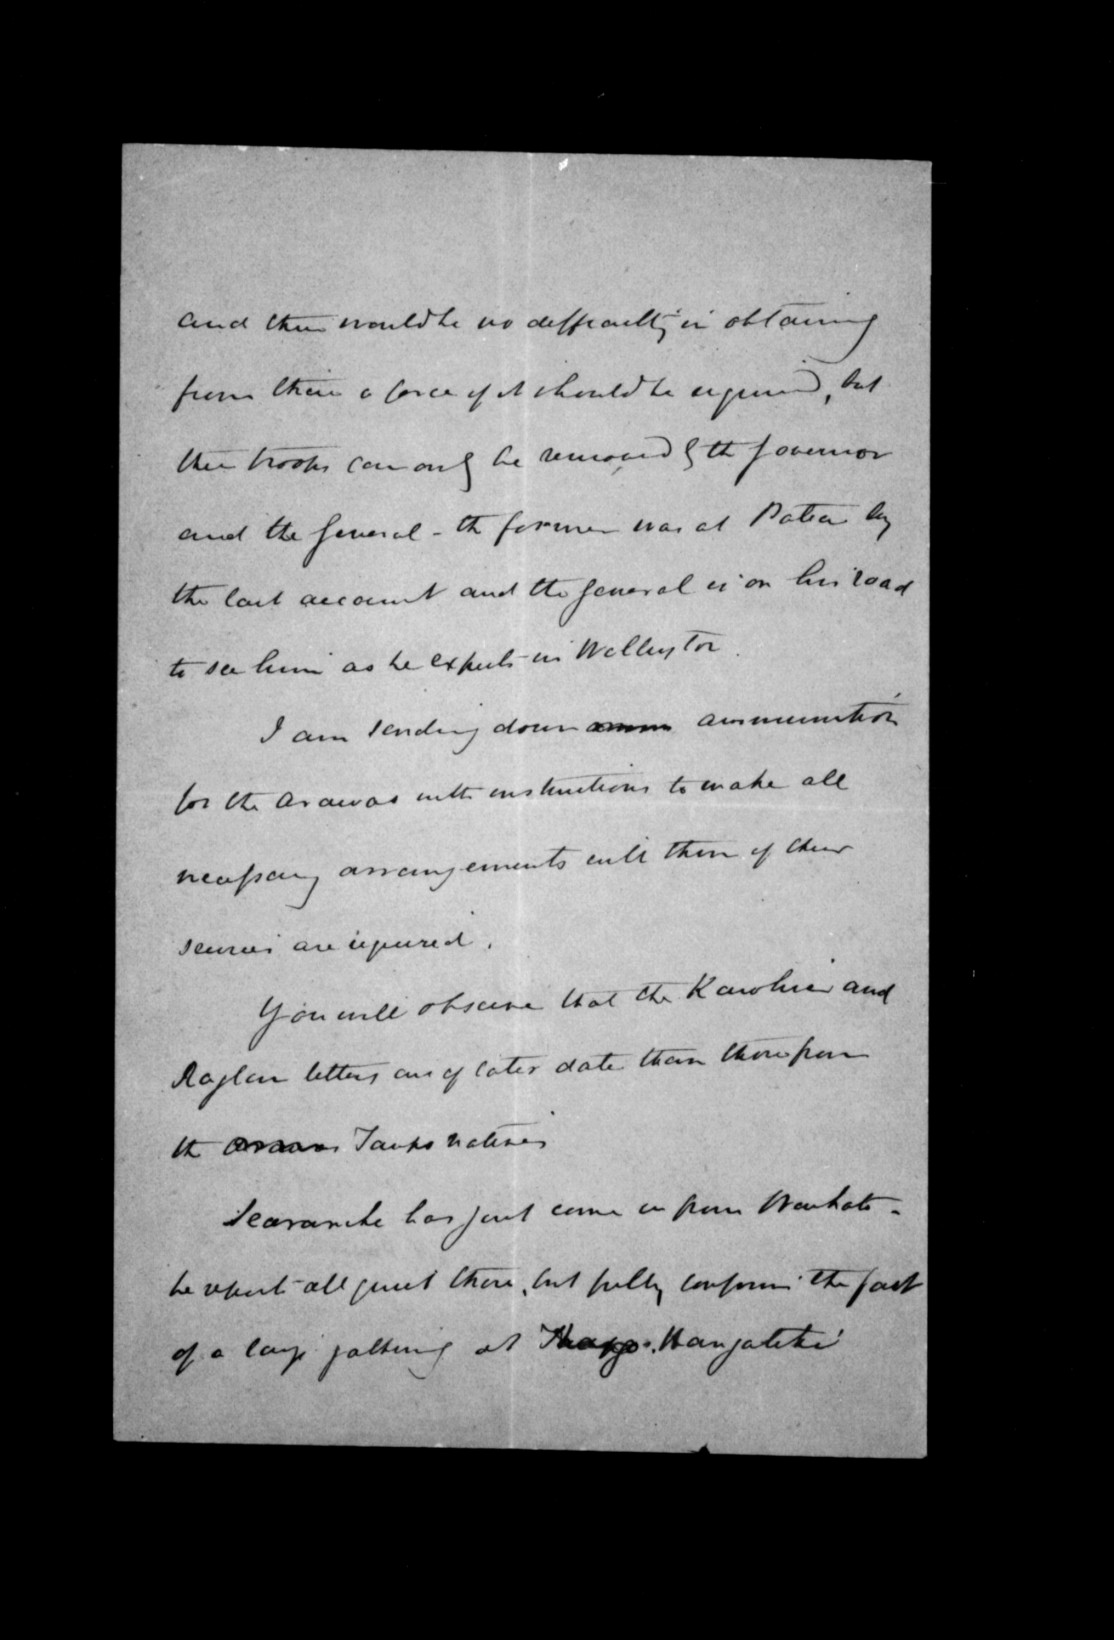 and there would be no difficulty in obtaining
from them a force if it should be required, but
the troops can only be removed by the Governor
and the General - the former was at Patea by
the last account and the General is on his road
to see him as he expects in Wellington.
I am sending down ammunition
for the Arawas with instructions to make all
necessary arrangements with them if their
services are required.
You will observe that the Kawhia and
Raglan letters are of later date than those from
the Taupo natives
Searancke has just come in from Waikato -
he reports all quiet there, but fully confirms the fact
of a large gathering at Hangatiki